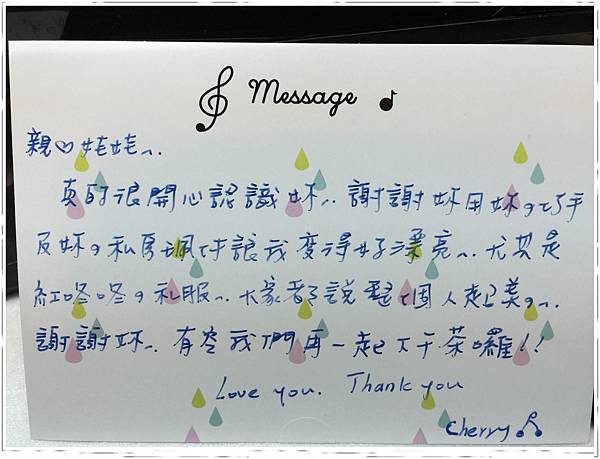 Message
親♡娃娃~.
真的很開心認識妳~. 謝謝妳用妳的巧手
及妳的私房珮件讓我變得好漂亮~. 尤其是
紅咚咚的私服~. 大家都說整個人超美的~.
謝謝妳~. 有空我們再一起下午茶囉!!
Love you. Thank you
Cherry